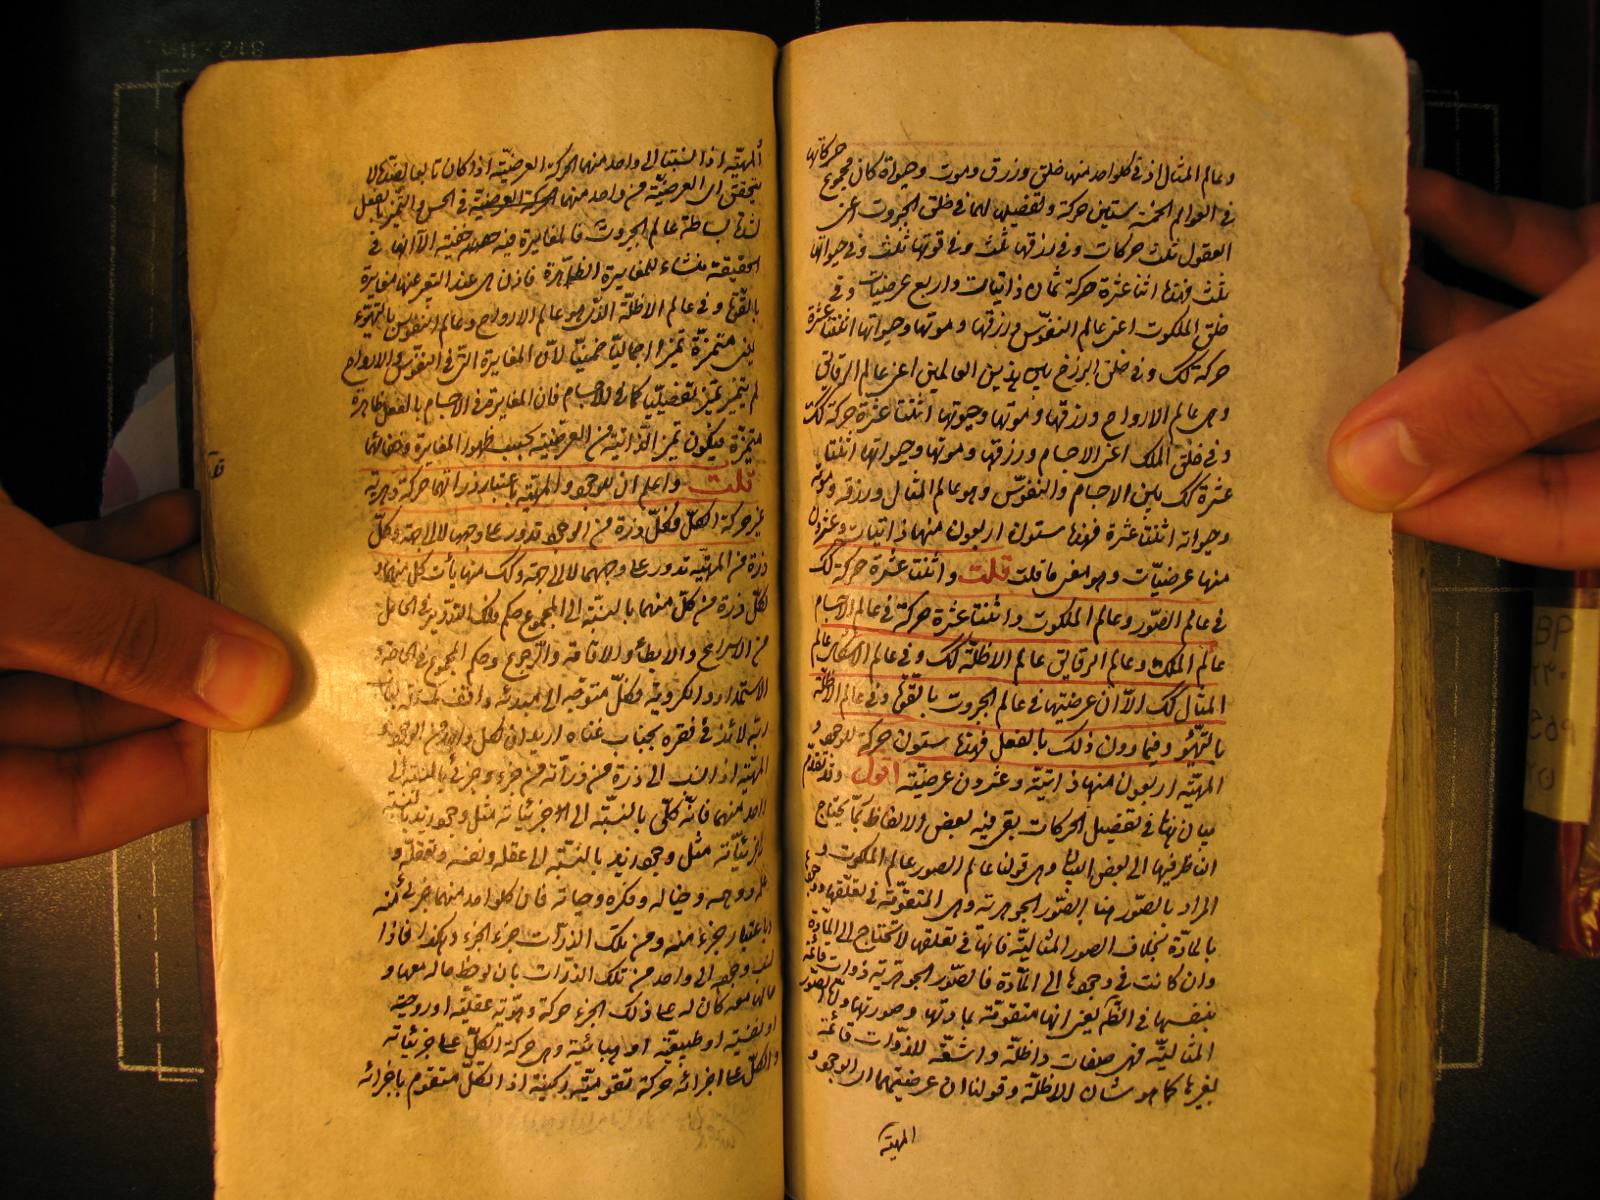 وعالم المثال اذ في كلواحد منها خلق ورزق وموت وحيوة كان مجموع حركاتها
في العوالم الخمسة ستين حركة وتفصيلها لها في خلق الجبروت اعنى
العقول ثلث حركات وفي رزقها ثلث وفي موتها ثلث وفي حيوتها
ثلث فهذه اثنتا عشرة حركة ثمان ذاتيات واربع عرضيات وفي
خلق الملكوت اعنى عالم النفوس ورزقها وموتها وحيوتها اثنتا عشرة
حركة كك وفي خلق البرزخ بين هذين العالمين اعنى عالم الرقايق
وهى عالم الارواح ورزقها وموتها وحيوتها اثنتا عشرة حركة كك
وفي خلق الملك اعنى الاجسام ورزقها وموتها وحيوتها اثنتا
عشرة كك بين الاجسام والنفوس وهو عالم المثال ورزقه وموته
وحيوته اثنتا عشرة فهذه ستون اربعون منها ذاتيات وعشرون
منها عرضيات وهو معنى ما قلت قلت واثنتا عشرة حركة كك
في عالم الصور وعالم الملكوت واثنتا عشرة حركة في عالم الاجسام
عالم الملك وعالم الرقايق عالم الاظلة كك وفي عالم الاشكال عالم
المثال كك الا ان عرضيتها في عالم الجبروت بالقوة وفي عالم الاظلة
بالتهيؤ وفيما دون ذلك بالفعل فهذه ستون حركة للوجود و
المهيّة اربعون منها ذاتيّة وعشرون عرضيّة اقول وقد تقدم
بيان هذا في تفصيل الحركات بقى فيه بعض الالفاظ مما يحتاج
الناظر فيها الى بعض البيان وهى قولنا عالم الصور عالم الملكوت و
المراد بالصّور هنا الصّور الجوهرية وهى المتقومة في تعلقها ووجودها
بالمادّة بخلاف الصور المثاليّة فانها في تعلقها لا تحتاج الى المادّة
وان كانت في وجودها الى المادّة فالصّور الجوهريّة ذوات قائمة
بنفسها في الظّهر يعنى انها متقوّمة بمادتها وصورتها والصّور
المثاليّة فهى صفات واظلّة واشعّة للذّوات قائمة
بغيرها كما هو شان الاظلّة وقولنا ان عرضيتهما اى الوجود و
المهيّة
المهيّة اذا انسبتا الى واحد منهما الحركة العرضيّة اذا كان تابعا لضدّه لا
يتحقق اى العرضيّة من واحد منهما الحركة العرضية في الحس والتميز بالفعل
لشدة بساطة عالم الجبروت فالمغايرة فيه خفية الا انها في
الحقيقة منشاء للمغايرة الظاهرة فاذن هى عند التعبير عنها مغايرة
بالقوة وفي عالم الاظلّة الذى هو عالم الارواح وعالم النفوس بالتهيؤ
يعنى متميزة تميزا اجماليا ضمنيا لانّ المغايرة التى في النفوس والارواح
لم تتميز تميز تفصيليا كما في الاجسام فان المغايرة في الاجسام بالفعل ظاهرة
متميزة فيكون تميز الذاتية من العرضية بحسب ظهور المغايرة وخفائها
قلت واعلم ان للوجود والمهيّة باعتبار ذراتهما حركة دهرية
غير حركة الكلّ فكلّ ذرة من الوجود تدور على وجهها لا الى جهة وكلّ
ذرة من المهيّة تدور على وجهها لا الى جهة وكك منهما يأت كل منهما و
لكلّ ذرة من كلّ منهما بالنسبة الى المجموع حكم فلك التدوير في الحامل
من الاسراع والابطاء والاقامة والرّجوع وحكم المجموع في
الاستمداد والكرويّة فكلّ متوجّه الى مبدئه واقف بمسئلة باب
ربّه لائذ في فقره بجناب غناه اريد ان لكل واحد من الوجود و
المهيّة اذا نسب الى ذرة من ذراته من جزء وجزئى بالنسبة الى
واحد منهما فانّه كلّى بالنسبة الى جزئياته مثل وجود زيد بالنسبة
لجزئيّاته مثل وجود زيد بالنسبة الى عقله ونفسه وتعقله و
علمه ووهمه وخياله وفكره وحياته فان كلواحد منهما جزئى منه
وباعتبار جزء منه ومن تلك الذرّات جزء الجزء وهكذا فاذا
نسب وجود الى واحد من تلك الذّرات بان لوحظ ماله معها و
مالها معه كان له على ذلك الجزء حركة دهرية عقليّة او روحيّة
او نفسيّة او طبيعيّة او هبائيّة وهى حركة الكلّ على جزئياته
والكلّ على اجزائه حركة تقوميّة ركنيّة اذ الكلّ متقوم باجزائه